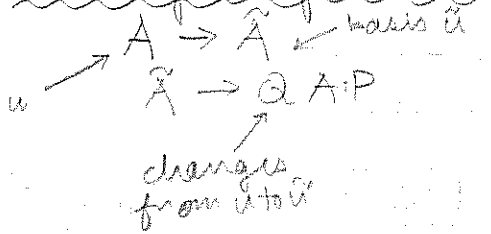 A → Ã basis ũ
u
Ã → Q A P
changes
from u to ũ